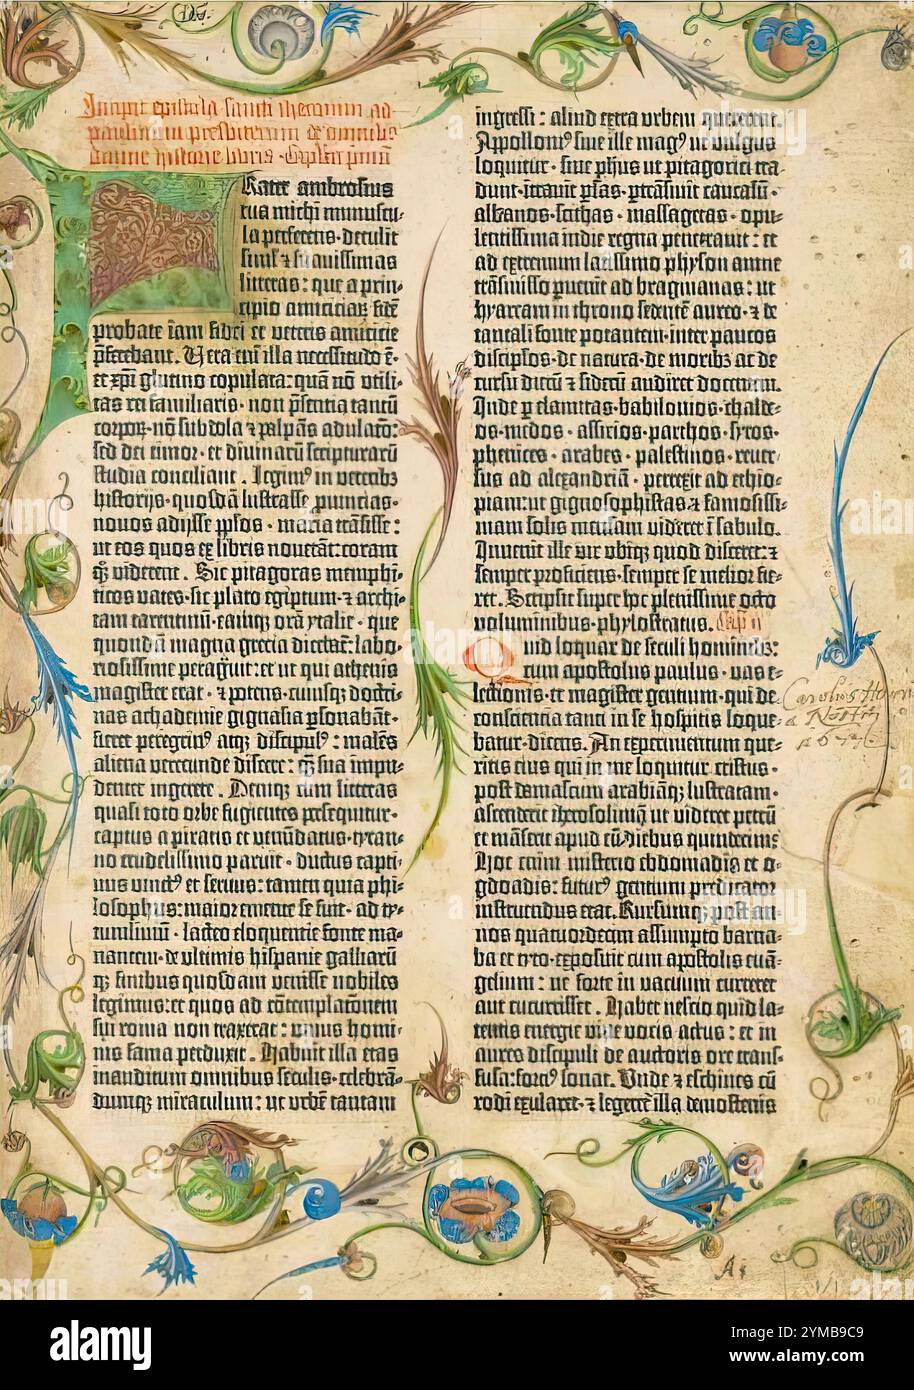 Incipit epistola sancti iheronimi ad
paulinum presbiterum de omnibus
divine historie libris · Capitulum primum
Frater ambrosius
tua michi munuscu-
la perferens · detulit
siml' ⁊ suavissimas
litteras: que a prin-
cipio amiciciaꝝ fidē
probate iam fidei et veteris amicicie
pferebant. Uera enī illa necessitudo ē ·
et xpi glutino copulata: quā nō utili-
tas rei familiaris · non psentia tantū
corpoꝝ · nō subdola ⁊ palpās adulatō:
sed dei timor · et divinarū scripturarū
studia conciliant. Legimꝰ in veteribꝫ
historijs · quosdā lustrasse provincias ·
novos adijsse pplos · maria trāsisse:
ut eos quos ex libris noverāt: coram
qꝫ viderent. Sic pitagoras memphi-
ticos vates · sic plato egiptum · ⁊ archi-
tam tarentinū · eamqꝫ orā ytalie · que
quondā magna grecia dicebat: labo-
riosissime peragvit: et ut qui athenis
magister erat · ⁊ potens · cuiusqꝫ doctri-
nas achademie gignasia psonabāt ·
fieret peregrinꝰ atqꝫ discipulꝰ: malēs
aliena verecunde discere: qꝫ sua impu-
denter ingerere. Deniqꝫ cum litteras
quasi toto orbe fugientes psequitur ·
captus a piratis et venūdatus · tyran-
no crudelissimo paruit · ductus capti-
vus vinctꝰ et servus: tamen quia phi-
losophus: maior emente se fuit · ad ty-
tumlivium · lacteo eloquentie fonte ma-
nantem · de ultimis hispanie galliarū
qꝫ finibus quosdam venisse nobiles
legimus: et quos ad cōtemplacōnem
sui roma non traxerat: unius homi-
nis fama perduxit. Habuit illa etas
inauditum omnibus seculis · celebrā-
dumqꝫ miraculum: ut urbē tantam
ingressi: aliud extra urbem quererent.
Appollonꝰ sive ille magꝰ ut vulgus
loquitur · sive phus ut pitagorici tra-
dunt · itravit psas · ptrāsivit caucasū ·
albanos · scithas · massagetas · opu-
lentissima indie regna penetravit: et
ad extremum latissimo physon amne
trāsmisso pvenit ad bragmanas: ut
hyarcam in throno sedentē aureo · ⁊ de
tantali fonte potantem · inter paucos
discipłos · de natura · de moribꝫ ac de
cursu dierū ⁊ siderū audiret docentem.
Inde p elamitas · babilonios · chalde-
os · medos · assirios · parthos · syros ·
phenices · arabes · palestinos · rever-
sus ad alexandriā · perrexit ad ethio-
piam: ut gignosophistas ⁊ famosissi-
mam solis mensam videret ī sabulo.
Invenit ille vir ubiqꝫ quod disceret: ⁊
semper proficiens · semper se melior fie-
ret. Scripsit super hoc plenissime octo
voluminibus · phylostratus. Cap ii
Quid loquar de seculi hominibꝫ:
cum apostolus paulus · vas e-
lectionis · et magister gentium · qui de
conscientia tanti in se hospitis loque-
batur · dicens. An experimentum que-
ritis eius qui in me loquitur cristus ·
post damascum arabiāqꝫ lustratam ·
ascenderit iherosolimā ut videret petrū
et māserit apud eū diebus quindecim ·
Hoc enim misterio ebdomadis et o-
gdoadis: futurꝰ gentium predicator
instruendus erat. Rursumqꝫ post an-
nos quatuordecim assumpto barna-
ba et tyto · exposuit cum apostolis euā-
gelium: ne forte in vacuum curreret
aut cucurrisset. Habet nescio quid la-
tentis energie vive vocis actus: et in
aures discipuli de auctoris ore trans-
fusa: forciꝰ sonat. Unde ⁊ eschines cū
rodi exularet · ⁊ legeretʳ illa demostenis
A
alamy
Image ID: 2YMB9C9
www.alamy.com